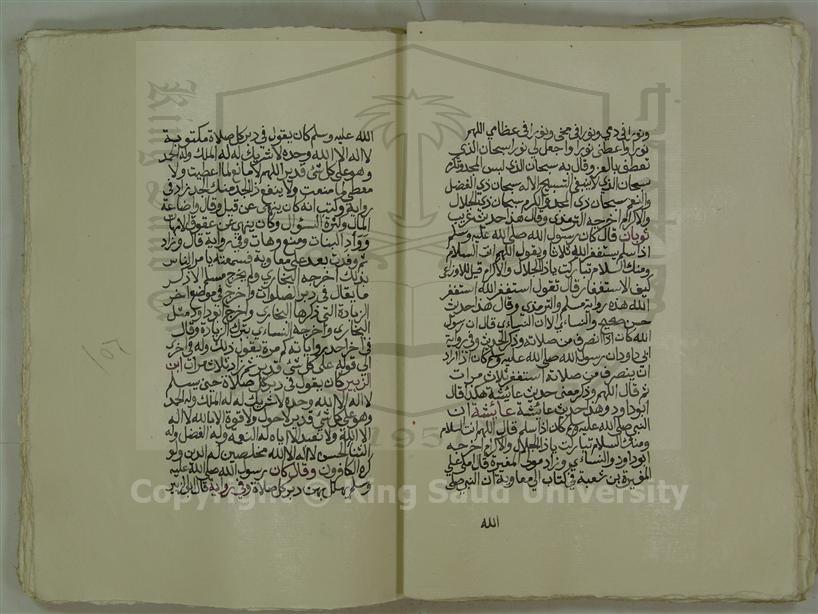 ونورا في دمي ونورا في مخي ونورا في عظامي اللهم
نورا واعطني نورا واجعل لي نورا سبحان الذي
تعطف بالعز وقال به سبحان الذي لبس المجد وتكرم
سبحان الذي لا ينبغي التسبيح الا له سبحان ذي الفضل
والنعم سبحان ذي المجد والكرم سبحان ذي الجلال
والاكرام اخرجه الترمذي وقال هذا حديث غريب
ثوبان قال كان رسول الله صلى الله عليه وسلم
اذا سلم يستغفر الله ثلاثا ويقول اللهم انت السلام
ومنك السلام تباركت ياذا الجلال والاكرام قيل للاوزاعي
كيف الاستغفار قال تقول استغفر الله استغفر
الله هذه رواية مسلم والترمذي وقال هذا حديث
حسن صحيح والنسائي الا ان النسائي قال ان رسول
الله كان اذا انصرف من صلاته وذكر الحديث وفي رواية
ابي داود ان رسول الله صلى الله عليه وسلم كان اذا اراد
ان ينصرف من صلاته استغفر ثلاث مرات
ثم قال اللهم وذكر معنى حديث عائشة هكذا قال
ابو داود وهذا حديث عائشة عائشة ان
النبي صلى الله عليه وسلم كان اذا سلم قال اللهم انت السلام
ومنك السلام تباركت ياذا الجلال والاكرام اخرجه
ابو داود والنسائي وراد مولى المغيرة قال املى علي
المغيرة بن شعبة في كتاب الى معاوية ان النبي صلى
الله
الله عليه وسلم كان يقول في دبر كل صلاة مكتوبة
لا اله الا الله وحده لا شريك له له الملك وله الحمد
وهو على كل شئ قدير اللهم لا مانع لما اعطيت ولا
معطي لما منعت ولا ينفع ذا الجد منك الجد زاد في
رواية وكتب انه كان ينهى عن قيل وقال واضاعة
المال وكثرة السؤال وكان ينهى عن عقوق الامهات
وواد البنات ومنع وهات وفي رواية قال وراد
ثم وفدت بعد على معاوية فسمعته يامر الناس
بذلك اخرجه البخاري ولم يخرج مسلم الا ذكر
ما يقال في دبر الصلوات واخرج في موضع اخر
الزيادة التي ذكرها البخاري واخرج ابو داود مثل
البخاري واخرجه النسائي بترك الزيادة وقال
في اخر احد رواياته كم مرة يقول ذلك وله في اخرى
الى قوله على كل شئ قدير ثم زاد ثلاث مرات ابن
الزبير كان يقول في دبر كل صلاة حين يسلم
لا اله الا الله وحده لا شريك له له الملك وله الحمد
وهو على كل شئ قدير لا حول ولا قوة الا بالله لا اله
الا الله ولا نعبد الا اياه له النعمة وله الفضل وله
الثناء الحسن لا اله الا الله مخلصين له الدين ولو
كره الكافرون وقال كان رسول الله صلى الله عليه
وسلم يهلل بهن دبر كل صلاة وفي رواية قال ابو الزبير
Copyright © King Saud University
King Saud
195